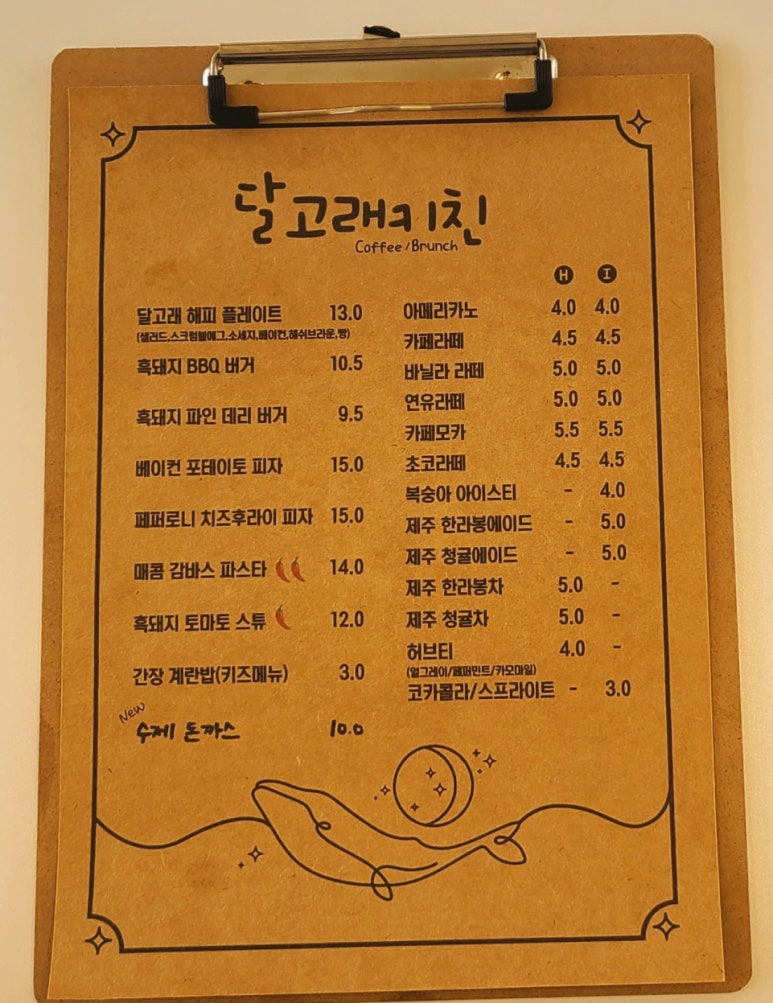 달고래키친
Coffee/Brunch
달고래 해피 플레이트 13.0
(샐러드,스크럼블에그,소세지,베이컨,해쉬브라운,빵)
흑돼지 BBQ 버거 10.5
흑돼지 파인 데리 버거 9.5
베이컨 포테이토 피자 15.0
페퍼로니 치즈후라이 피자 15.0
매콤 감바스 파스타 14.0
흑돼지 토마토 스튜 12.0
간장 계란밥(키즈메뉴) 3.0
New
수제 돈까스 10.0
H I
아메리카노 4.0 4.0
카페라떼 4.5 4.5
바닐라 라떼 5.0 5.0
연유라떼 5.0 5.0
카페모카 5.5 5.5
초코라떼 4.5 4.5
복숭아 아이스티 - 4.0
제주 한라봉에이드 - 5.0
제주 청귤에이드 - 5.0
제주 한라봉차 5.0 -
제주 청귤차 5.0 -
허브티 4.0 -
(얼그레이/페퍼민트/카모마일)
코카콜라/스프라이트 - 3.0